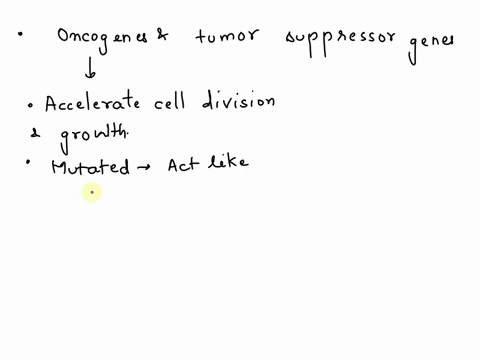 • Oncogenes & tumor suppressor genes
↓
• Accelerate cell division
& growth.
• Mutated → Act like